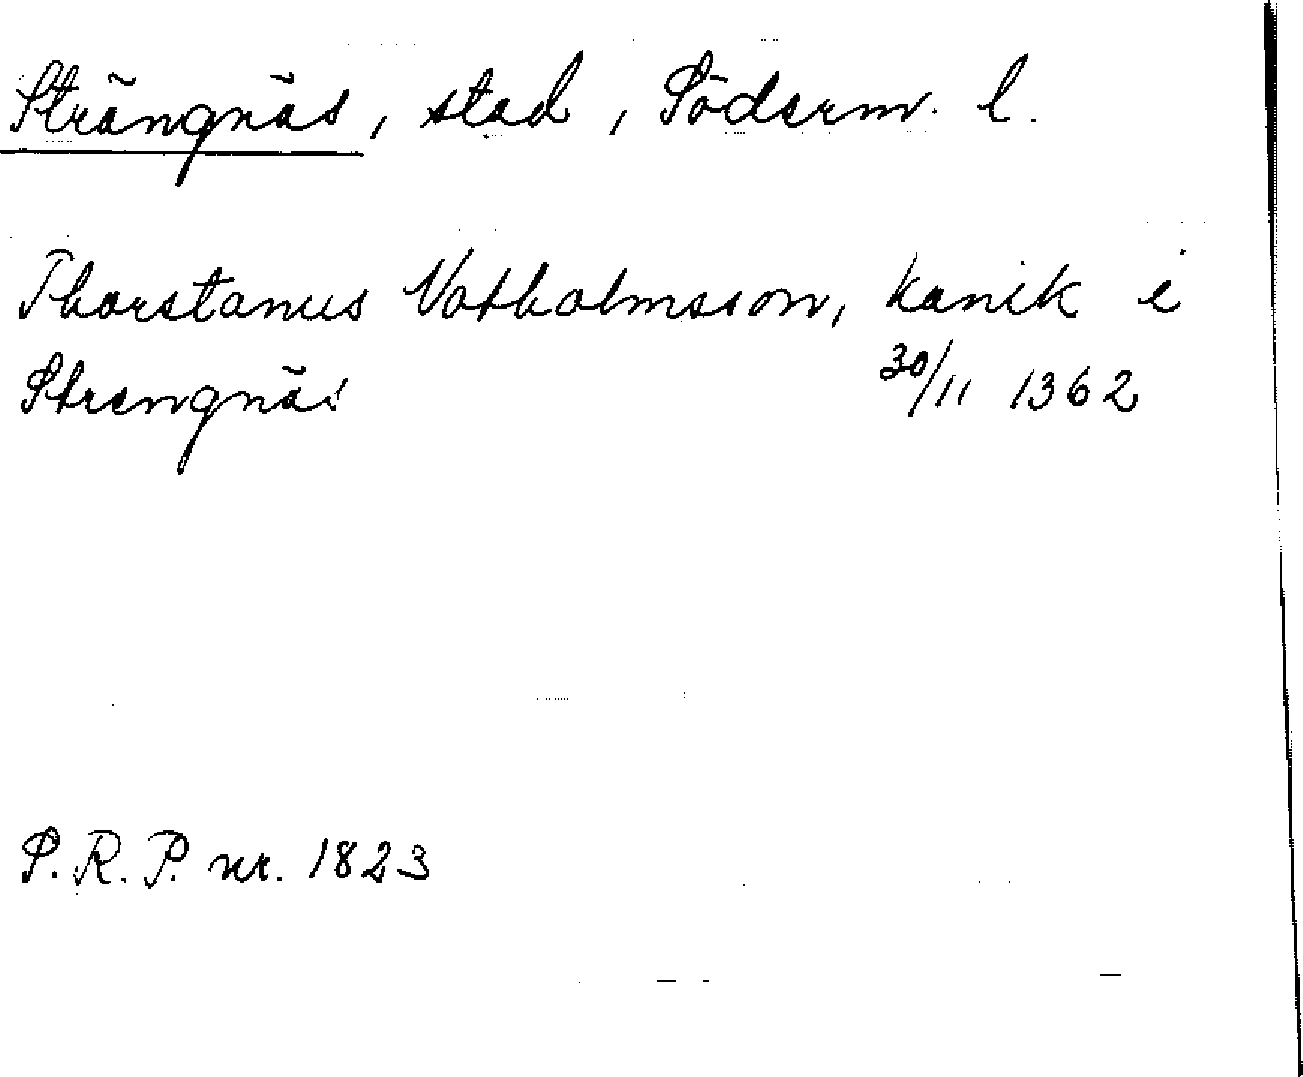 Strängnäs, stad, Söderm. l.
Thorstanus Votholmsson, kanik i
Strengnäs 30/11 1362
S.R.P. nr. 1823